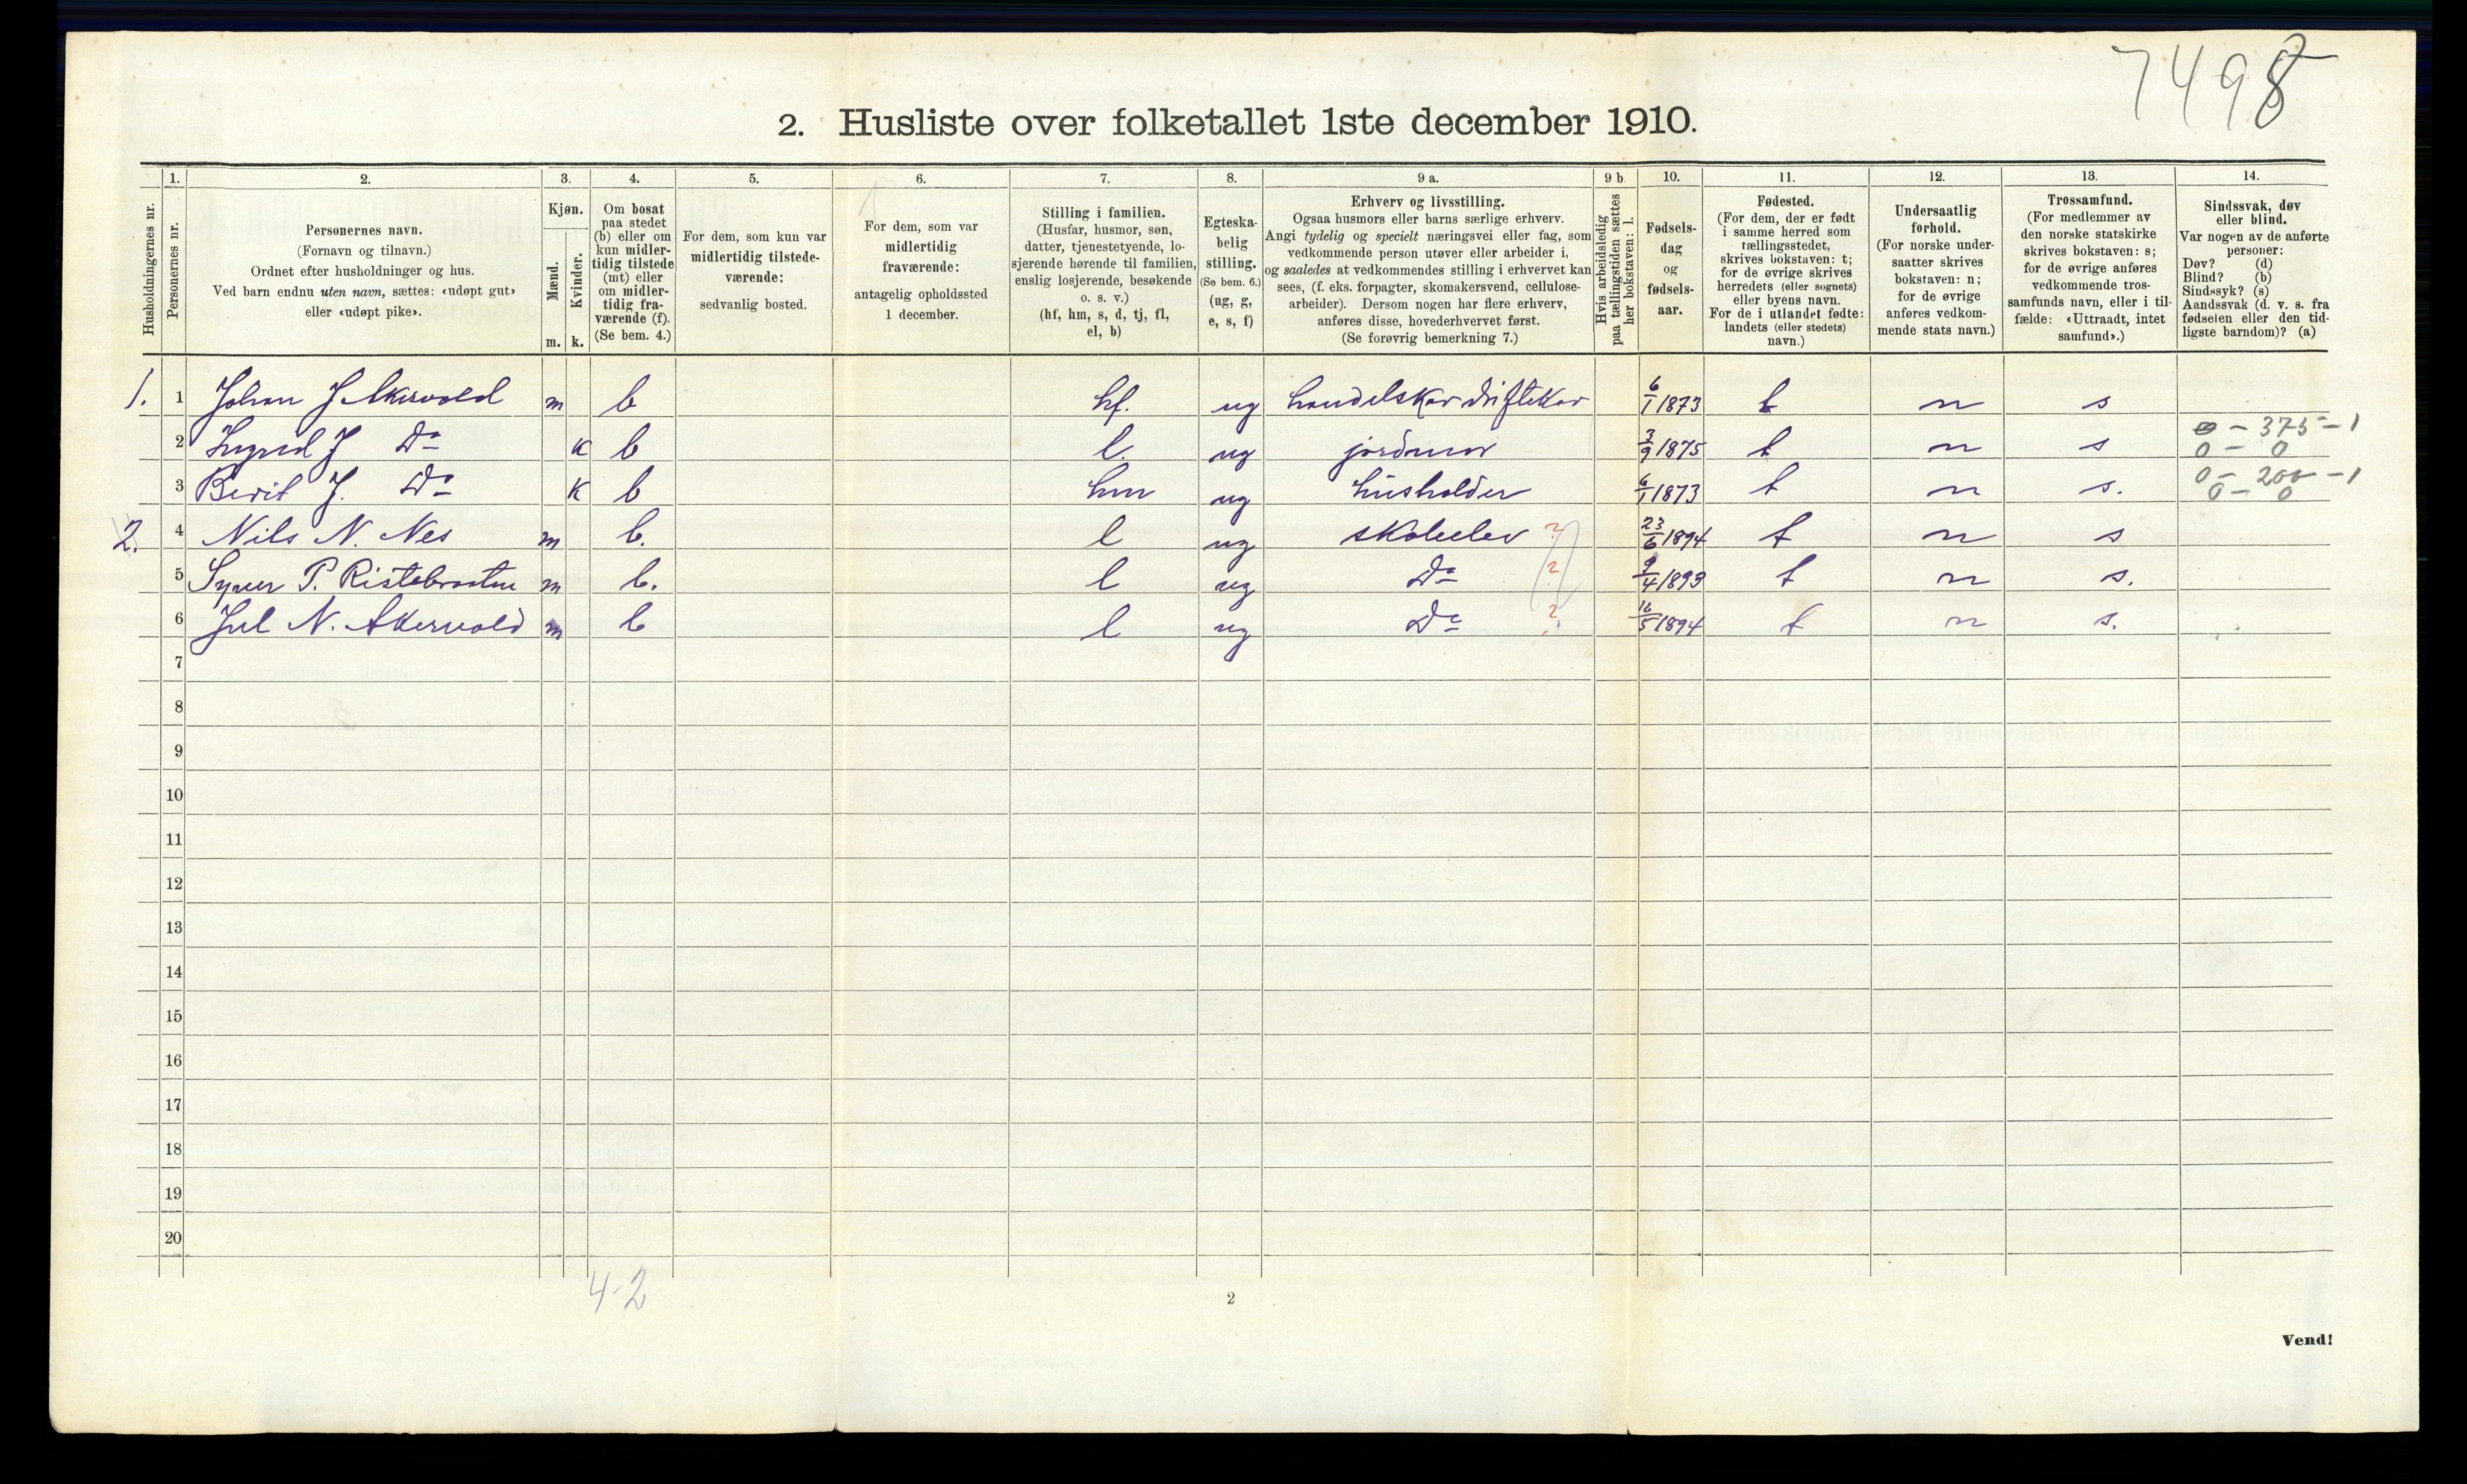 7498
2. Husliste over folketallet 1ste december 1910.
Husholdningernes nr.
1.
Personernes nr.
2.
Personernes navn.
(Fornavn og tilnavn.)
Ordnet efter husholdninger og hus.
Ved barn endnu uten navn, sættes: «udøpt gut»
eller «udøpt pike».
3.
Kjøn.
Mænd.
Kvinder.
m. k.
4.
Om bosat
paa stedet
(b) eller om
kun midler-
tidig tilstede
(mt) eller
om midler-
tidig fra-
værende (f).
(Se bem. 4.)
5.
For dem, som kun var
midlertidig tilstede-
værende:
sedvanlig bosted.
6.
For dem, som var
midlertidig
fraværende:
antagelig opholdssted
1 december.
7.
Stilling i familien.
(Husfar, husmor, søn,
datter, tjenestetyende, lo-
sjerende hørende til familien,
enslig losjerende, besøkende
o. s. v.)
(hf, hm, s, d, tj, fl,
el, b)
8.
Egteska-
belig
stilling.
(Se bem. 6.)
(ug, g,
e, s, f)
9 a.
Erhverv og livsstilling.
Ogsaa husmors eller barns særlige erhverv.
Angi tydelig og specielt næringsvei eller fag, som
vedkommende person utøver eller arbeider i,
og saaledes at vedkommendes stilling i erhvervet kan
sees, (f. eks. forpagter, skomakersvend, cellulose-
arbeider). Dersom nogen har flere erhverv,
anføres disse, hovederhvervet først.
(Se forøvrig bemerkning 7.)
9 b
Hvis arbeidsledig
paa tællingstiden sættes
her bokstaven: l.
10.
Fødsels-
dag
og
fødsels-
aar.
11.
Fødested.
(For dem, der er født
i samme herred som
tællingsstedet,
skrives bokstaven: t;
for de øvrige skrives
herredets (eller sognets)
eller byens navn.
For de i utlandet fødte:
landets (eller stedets)
navn.)
12.
Undersaatlig
forhold.
(For norske under-
saatter skrives
bokstaven: n;
for de øvrige
anføres vedkom-
mende stats navn.)
13.
Trossamfund.
(For medlemmer av
den norske statskirke
skrives bokstaven: s;
for de øvrige anføres
vedkommende tros-
samfunds navn, eller i til-
fælde: «Uttraadt, intet
samfund».)
14.
Sindssvak, døv
eller blind.
Var nogen av de anførte
personer:
Døv? (d)
Blind? (b)
Sindssyk? (s)
Aandssvak (d. v. s. fra
fødselen eller den tid-
ligste barndom)? (a)
1. 1 Johan J Akervold m b hf. ug handelskar driftekar 6/1 1873 t n s
2 Ingrid J Do k b l. ug jordmor 3/9 1875 t n s 0 - 375 - 1
0 - 0
3 Berit J. Do k b hm ug husholder 6/1 1873 t n s. 0 - 200 - 1
0 - 0
2. 4 Nils N. Nes m b. l ug skoleelev ? 23/6 1894 t n s
5 Syver P. Ristebraaten m b. l ug Do ? 9/4 1893 t n s.
6 Jul N. Akervold m b l ug Do ? 16/5 1894 t n s.
7
8
9
10
11
12
13
14
15
16
17
18
19
20
4-2
2
Vend!